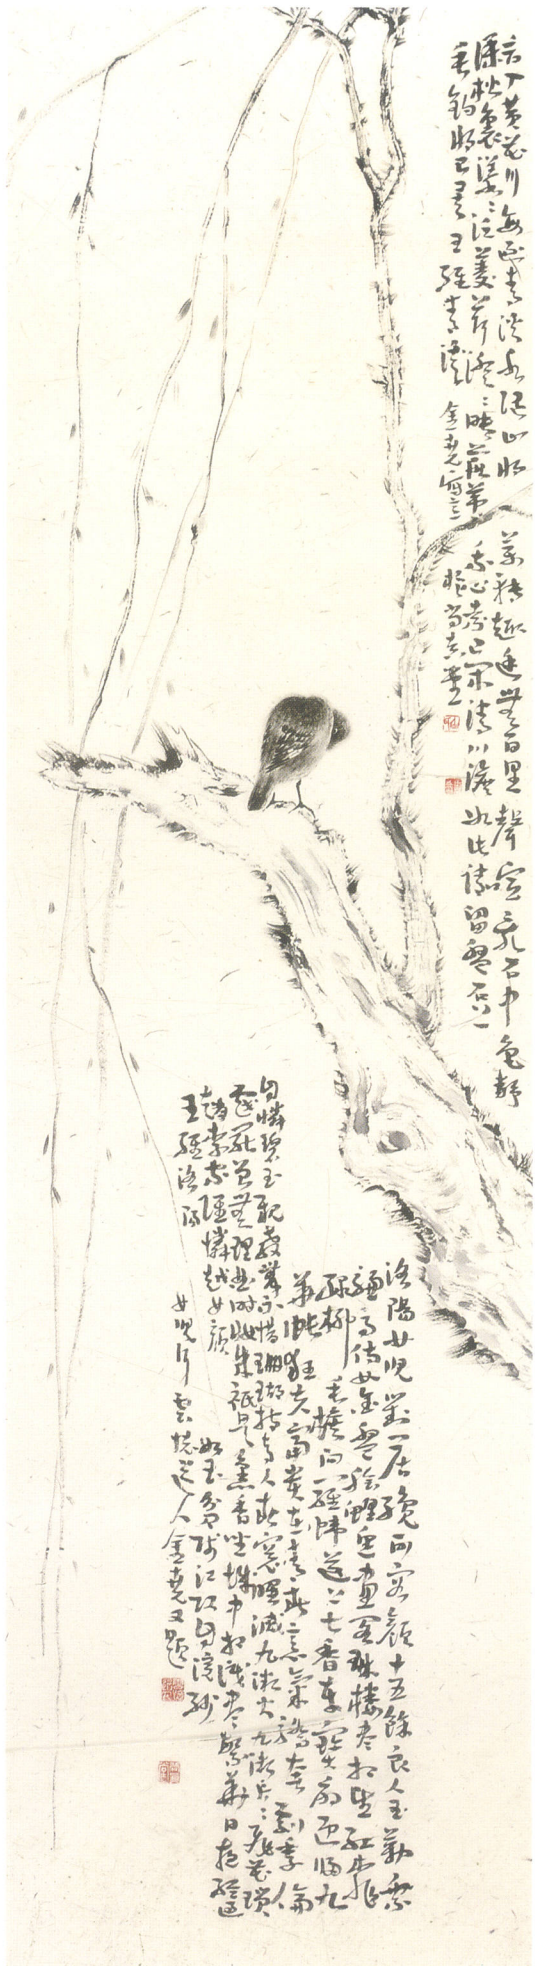 言入黄花川每逐青溪水随山將萬轉趣途無百里聲喧亂石中色靜
深松裏漾漾泛菱荇澄澄映葭葦我心素已閑清川澹如此請留盤石上
垂釣將已矣 王維青溪 金堯寫意於尚志堂
洛陽女兒對門居纔可容顏十五餘良人玉勒乘
驄馬侍女金盤膾鯉魚畫閣珠樓盡相望紅桃
綠柳垂簷向羅幃送上七香車寶扇迎歸九
華帳狂夫富貴在青春意氣驕奢劇季倫
自憐碧玉親教舞不惜珊瑚持與人春窗曙滅九微火九微片片飛花瑣
戲罷曾無理曲時妝成祇是熏香坐城中相識盡繁華日夜經過
趙李家誰憐越女顏如玉貧賤江頭自浣紗
王維洛陽女兒行 道人金堯又題